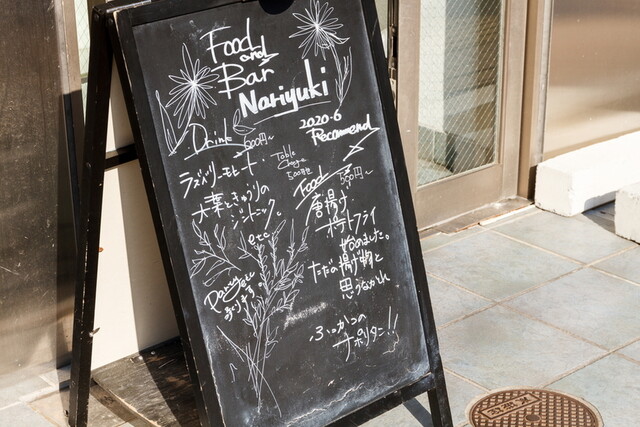 Food
and
Bar
Nariyuki
2020.6
Recommend
Drink
500円〜
ラズベリーモヒート
大葉ときゅうりの
ジントニック
etc
Table
Charge
500円
Food
500円〜
唐揚げ
ポテトフライ
始めました。
ただの揚げ物と
思うなかれ
ふっかつの
ナポリタン!!
あります。